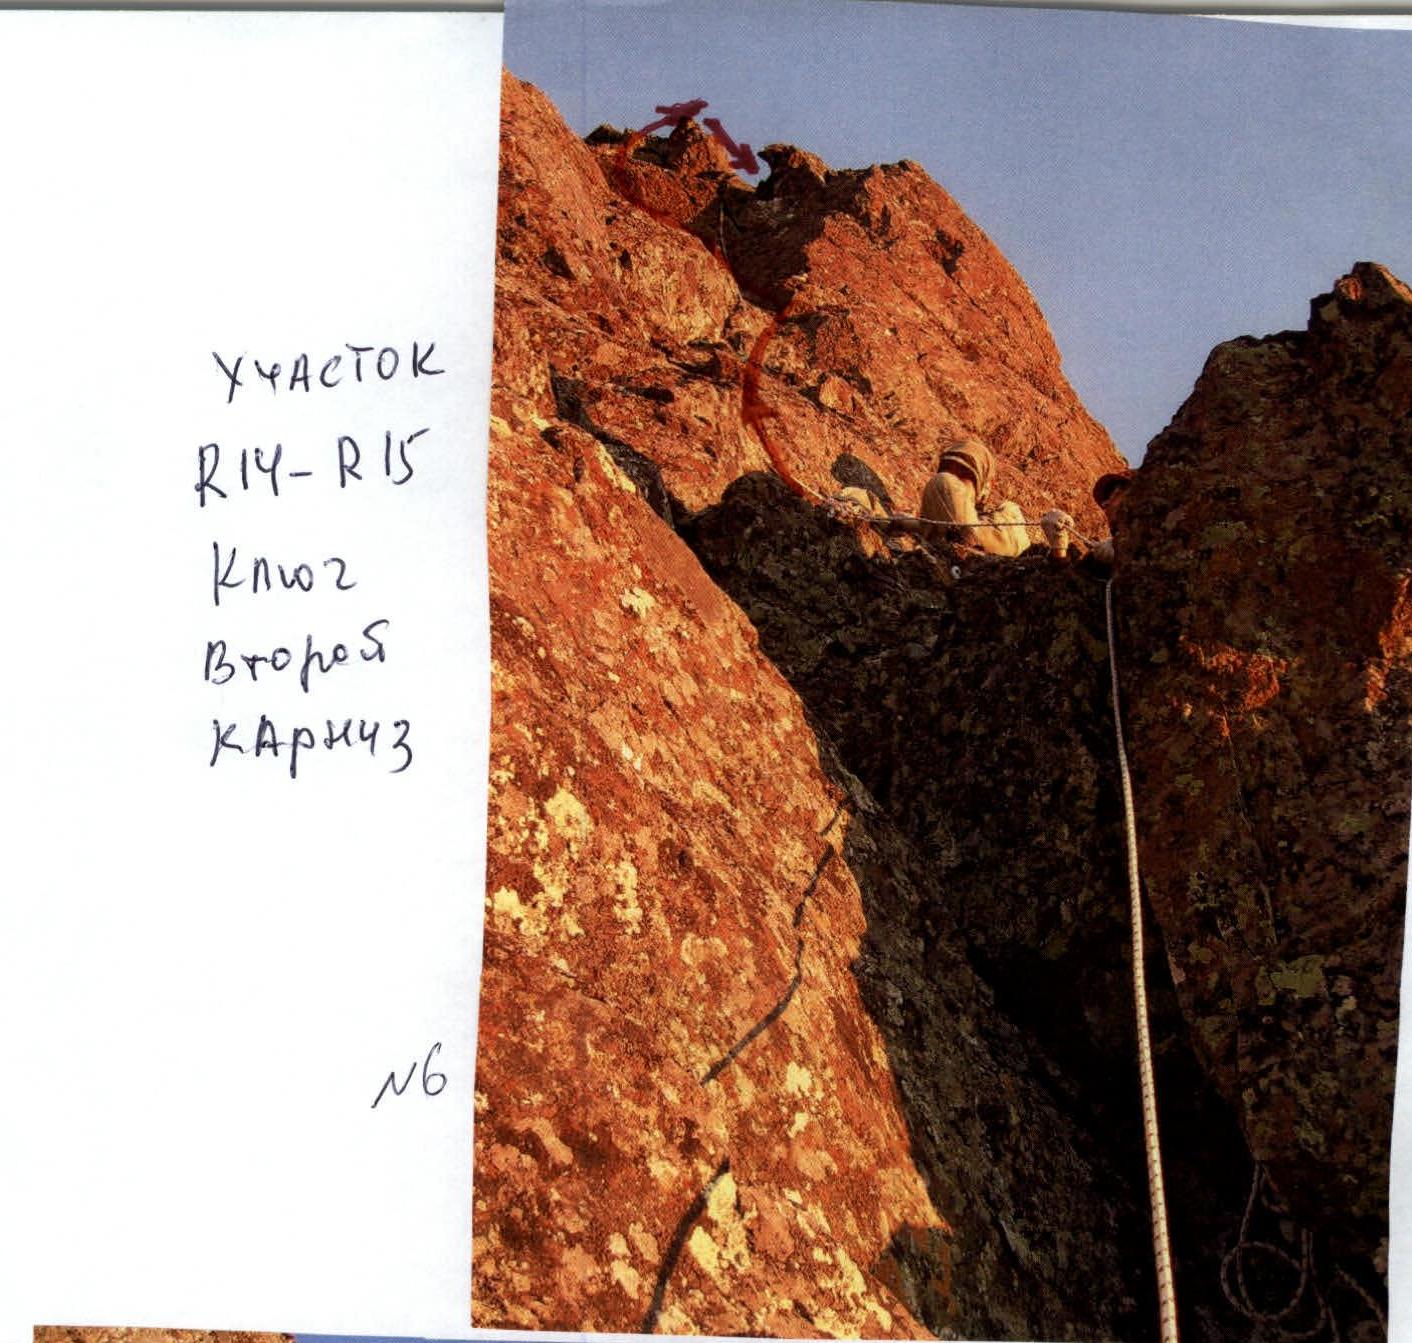 УЧАСТОК
R14-R15
Ключ
Второй
КАРНИЗ
N6